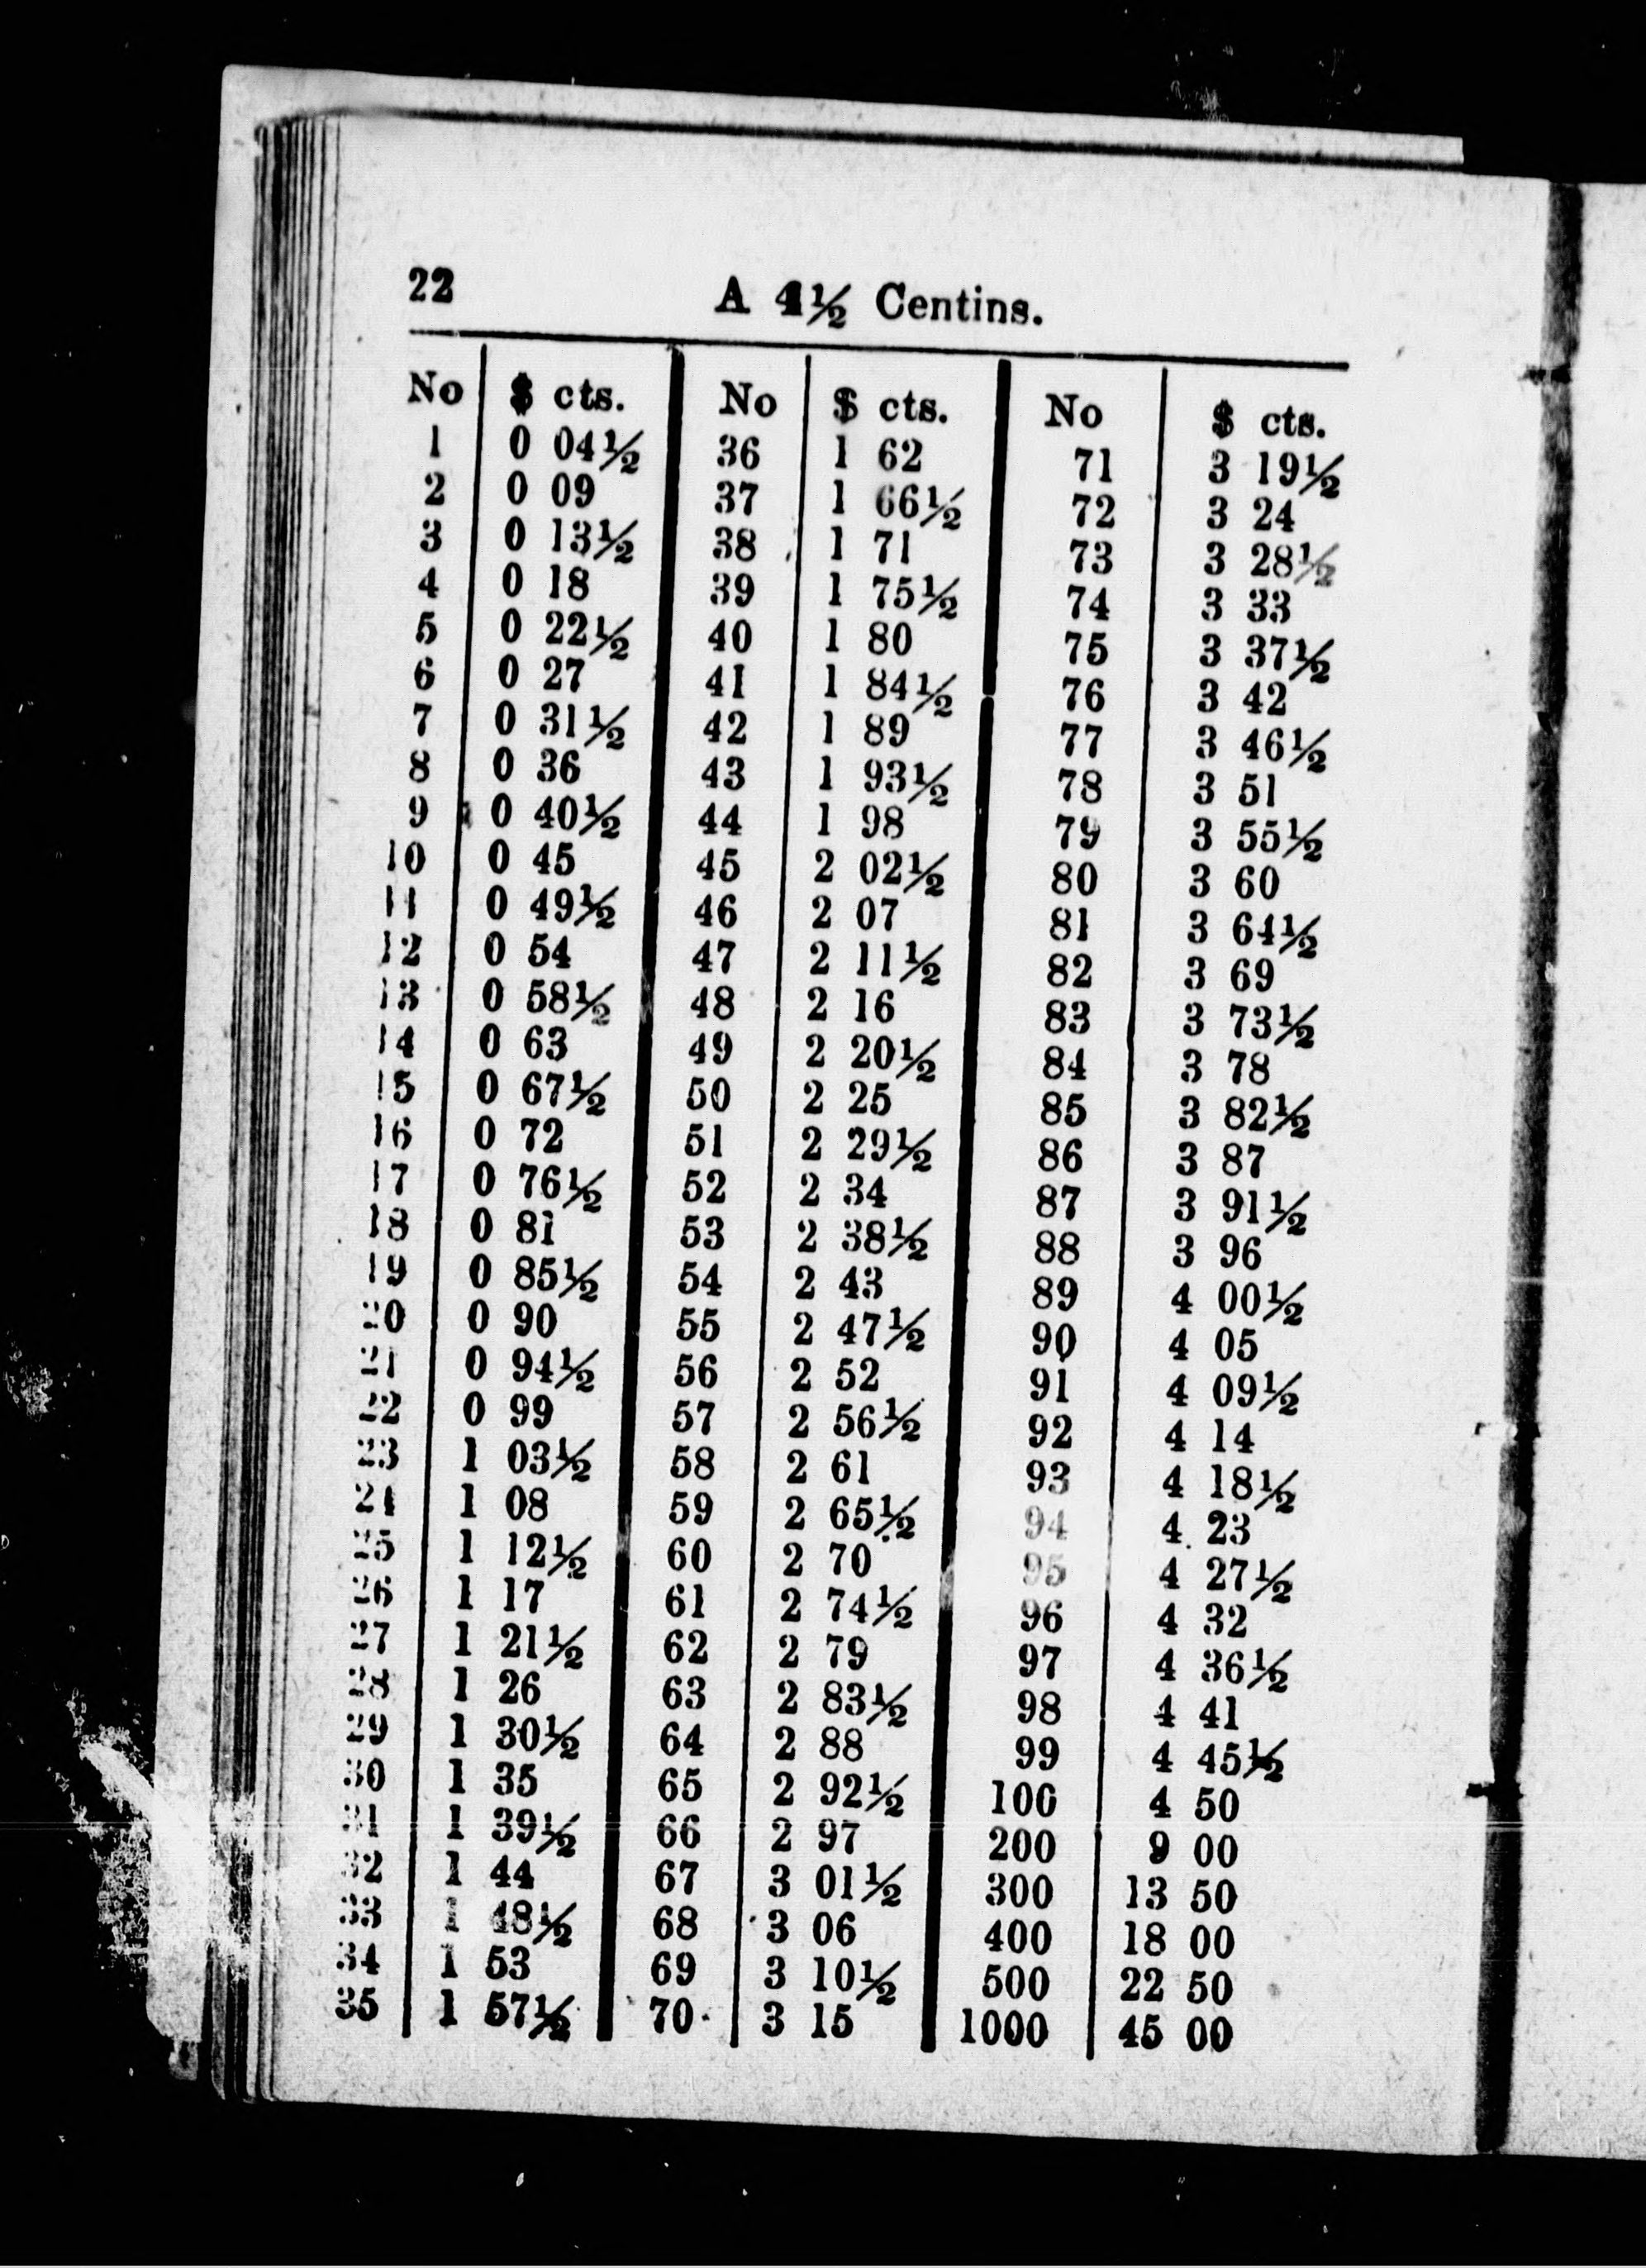 22
A 4½ Centins.
No $ cts. No $ cts. No $ cts.
1 0 04½ 36 1 62 71 3 19½
2 0 09 37 1 66½ 72 3 24
3 0 13½ 38 1 71 73 3 28½
4 0 18 39 1 75½ 74 3 33
5 0 22½ 40 1 80 75 3 37½
6 0 27 41 1 84½ 76 3 42
7 0 31½ 42 1 89 77 3 46½
8 0 36 43 1 93½ 78 3 51
9 0 40½ 44 1 98 79 3 55½
10 0 45 45 2 02½ 80 3 60
11 0 49½ 46 2 07 81 3 64½
12 0 54 47 2 11½ 82 3 69
13 0 58½ 48 2 16 83 3 73½
14 0 63 49 2 20½ 84 3 78
15 0 67½ 50 2 25 85 3 82½
16 0 72 51 2 29½ 86 3 87
17 0 76½ 52 2 34 87 3 91½
18 0 81 53 2 38½ 88 3 96
19 0 85½ 54 2 43 89 4 00½
20 0 90 55 2 47½ 90 4 05
21 0 94½ 56 2 52 91 4 09½
22 0 99 57 2 56½ 92 4 14
23 1 03½ 58 2 61 93 4 18½
24 1 08 59 2 65½ 94 4 23
25 1 12½ 60 2 70 95 4 27½
26 1 17 61 2 74½ 96 4 32
27 1 21½ 62 2 79 97 4 36½
28 1 26 63 2 83½ 98 4 41
29 1 30½ 64 2 88 99 4 45½
30 1 35 65 2 92½ 100 4 50
31 1 39½ 66 2 97 200 9 00
32 1 44 67 3 01½ 300 13 50
33 1 48½ 68 3 06 400 18 00
34 1 53 69 3 10½ 500 22 50
35 1 57½ 70 3 15 1000 45 00